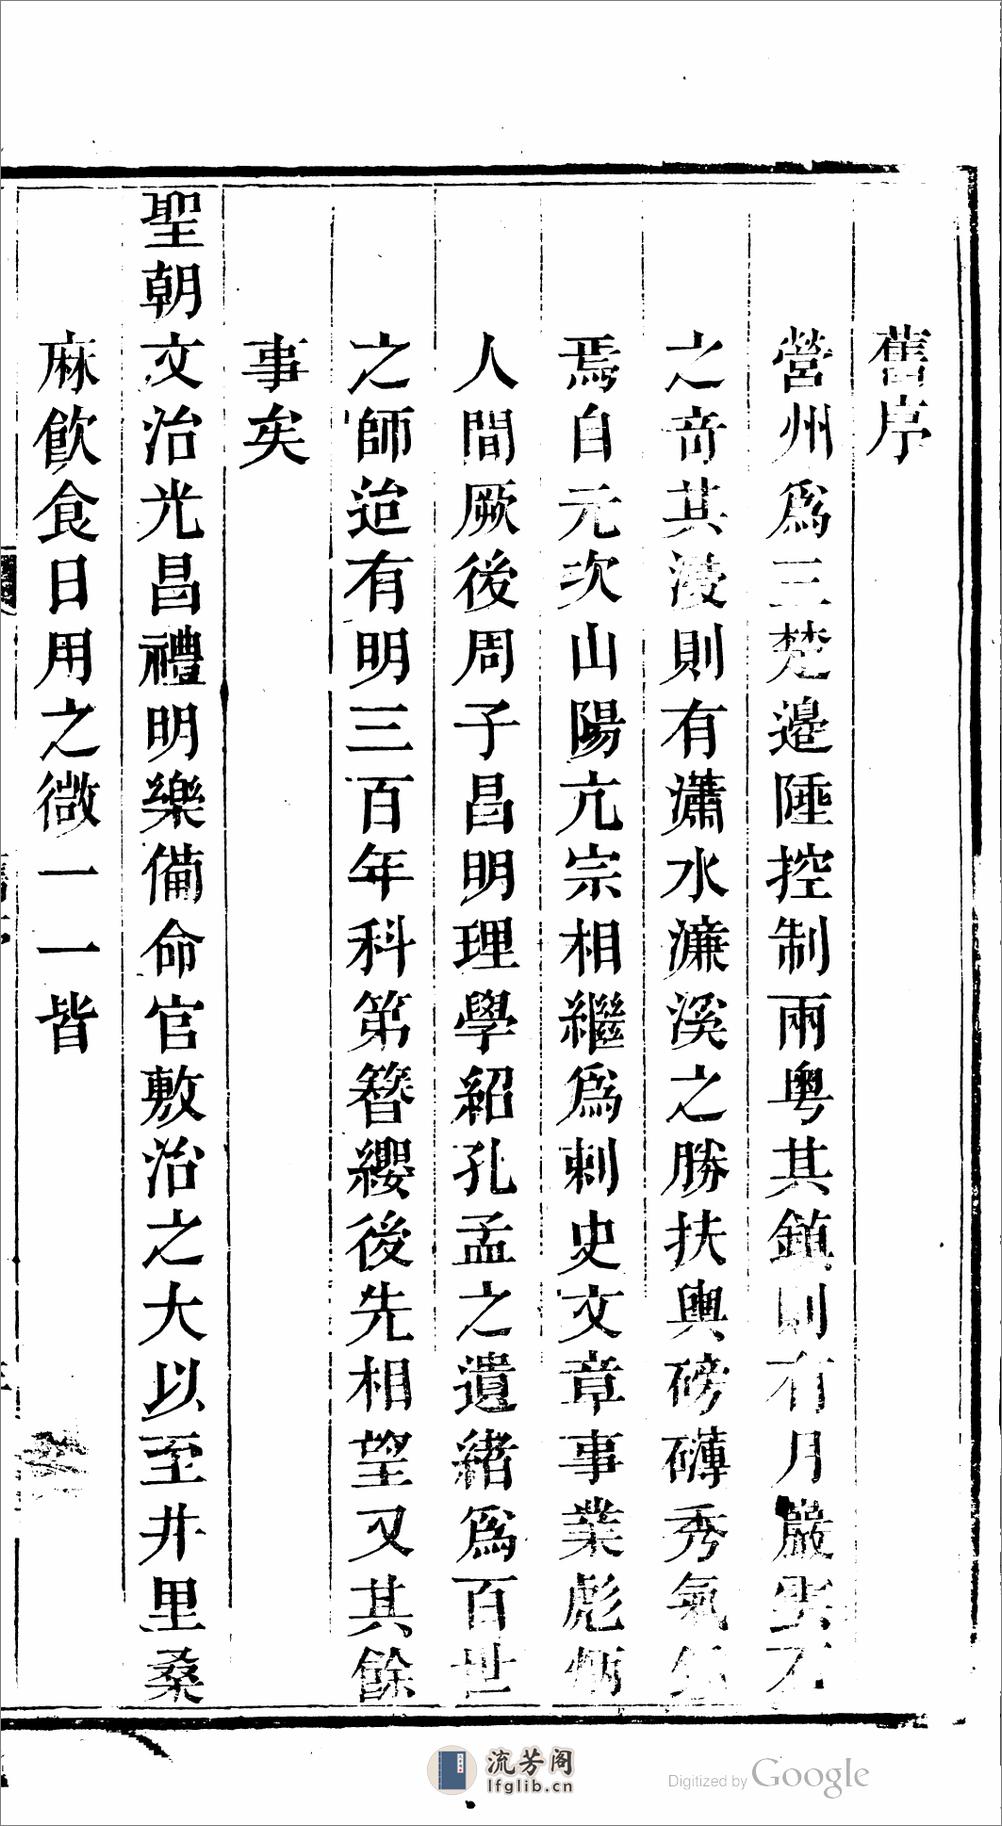 舊序
營州爲三楚邉陲控制兩粵其鎮則有月巖
之竒其浸則有瀟水濂溪之勝扶輿磅礴秀氣
焉自元次山陽亢宗相繼爲刺史文章事業彪炳
人間厥後周子昌明理學紹孔孟之遺緒爲百世
之師迨有明三百年科第簪纓後先相望又其餘
事矣
聖朝文治光昌禮明樂備命官敷治之大以至井里桑
麻飲食日用之微一一皆
流芳阁
lfglib.cn
Digitized by Google